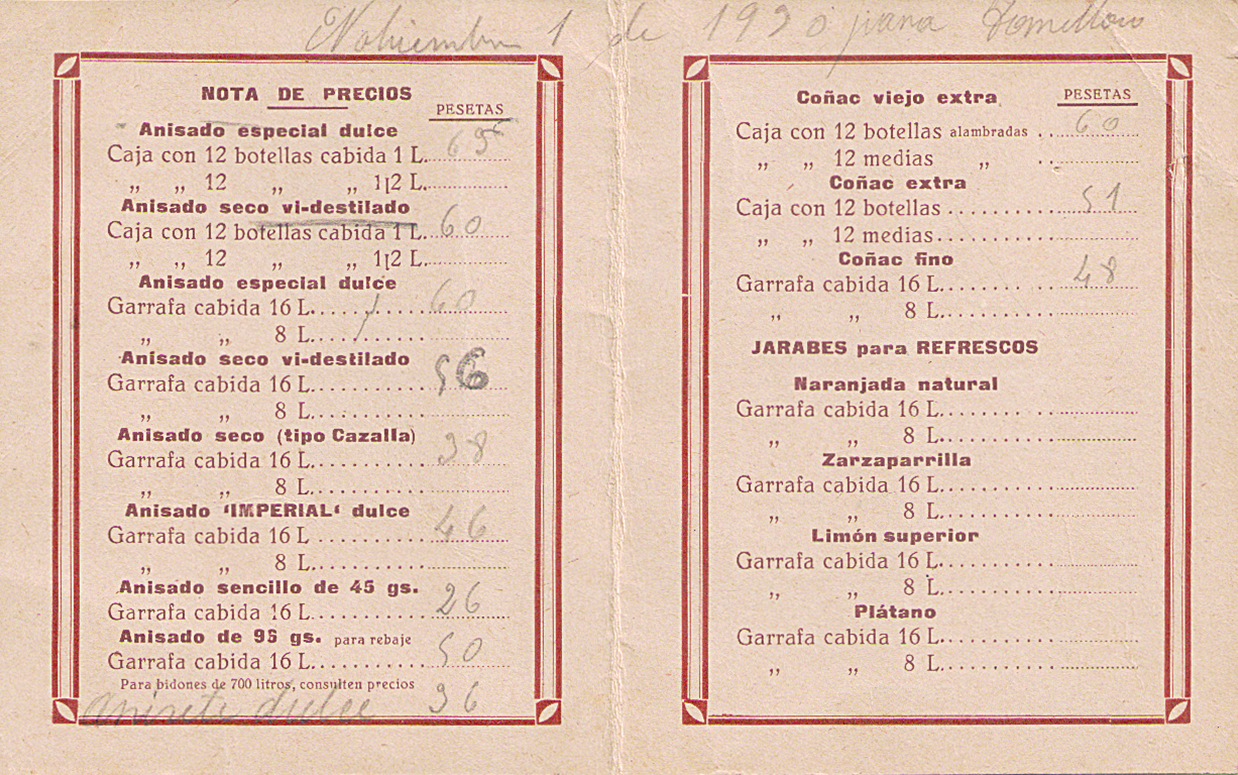 Nobiembre 1 de 1930 para
NOTA DE PRECIOS
PESETAS
Anisado especial dulce
Caja con 12 botellas cabida 1 L. 65
„ „ 12 „ „ 1|2 L.
Anisado seco vi-destilado
Caja con 12 botellas cabida 1 L. 60
„ „ 12 „ „ 1|2 L.
Anisado especial dulce
Garrafa cabida 16 L. 60
„ „ 8 L.
Anisado seco vi-destilado
Garrafa cabida 16 L. 56
„ „ 8 L.
Anisado seco (tipo Cazalla)
Garrafa cabida 16 L. 38
„ „ 8 L.
Anisado ‘IMPERIAL‘ dulce
Garrafa cabida 16 L 46
„ „ 8 L.
Anisado sencillo de 45 gs.
Garrafa cabida 16 L 26
Anisado de 96 gs. para rebaje
Garrafa cabida 16 L. 50
Para bidones de 700 litros, consulten precios
anisete dulce 36
Coñac viejo extra
PESETAS
Caja con 12 botellas alambradas . . 60
„ „ 12 medias „ . .
Coñac extra
Caja con 12 botellas 51
„ „ 12 medias
Coñac fino
Garrafa cabida 16 L. 48
„ „ 8 L.
JARABES para REFRESCOS
Naranjada natural
Garrafa cabida 16 L.
„ „ 8 L.
Zarzaparrilla
Garrafa cabida 16 L.
„ „ 8 L.
Limón superior
Garrafa cabida 16 L.
„ „ 8 L.
Plátano
Garrafa cabida 16 L.
„ „ 8 L.